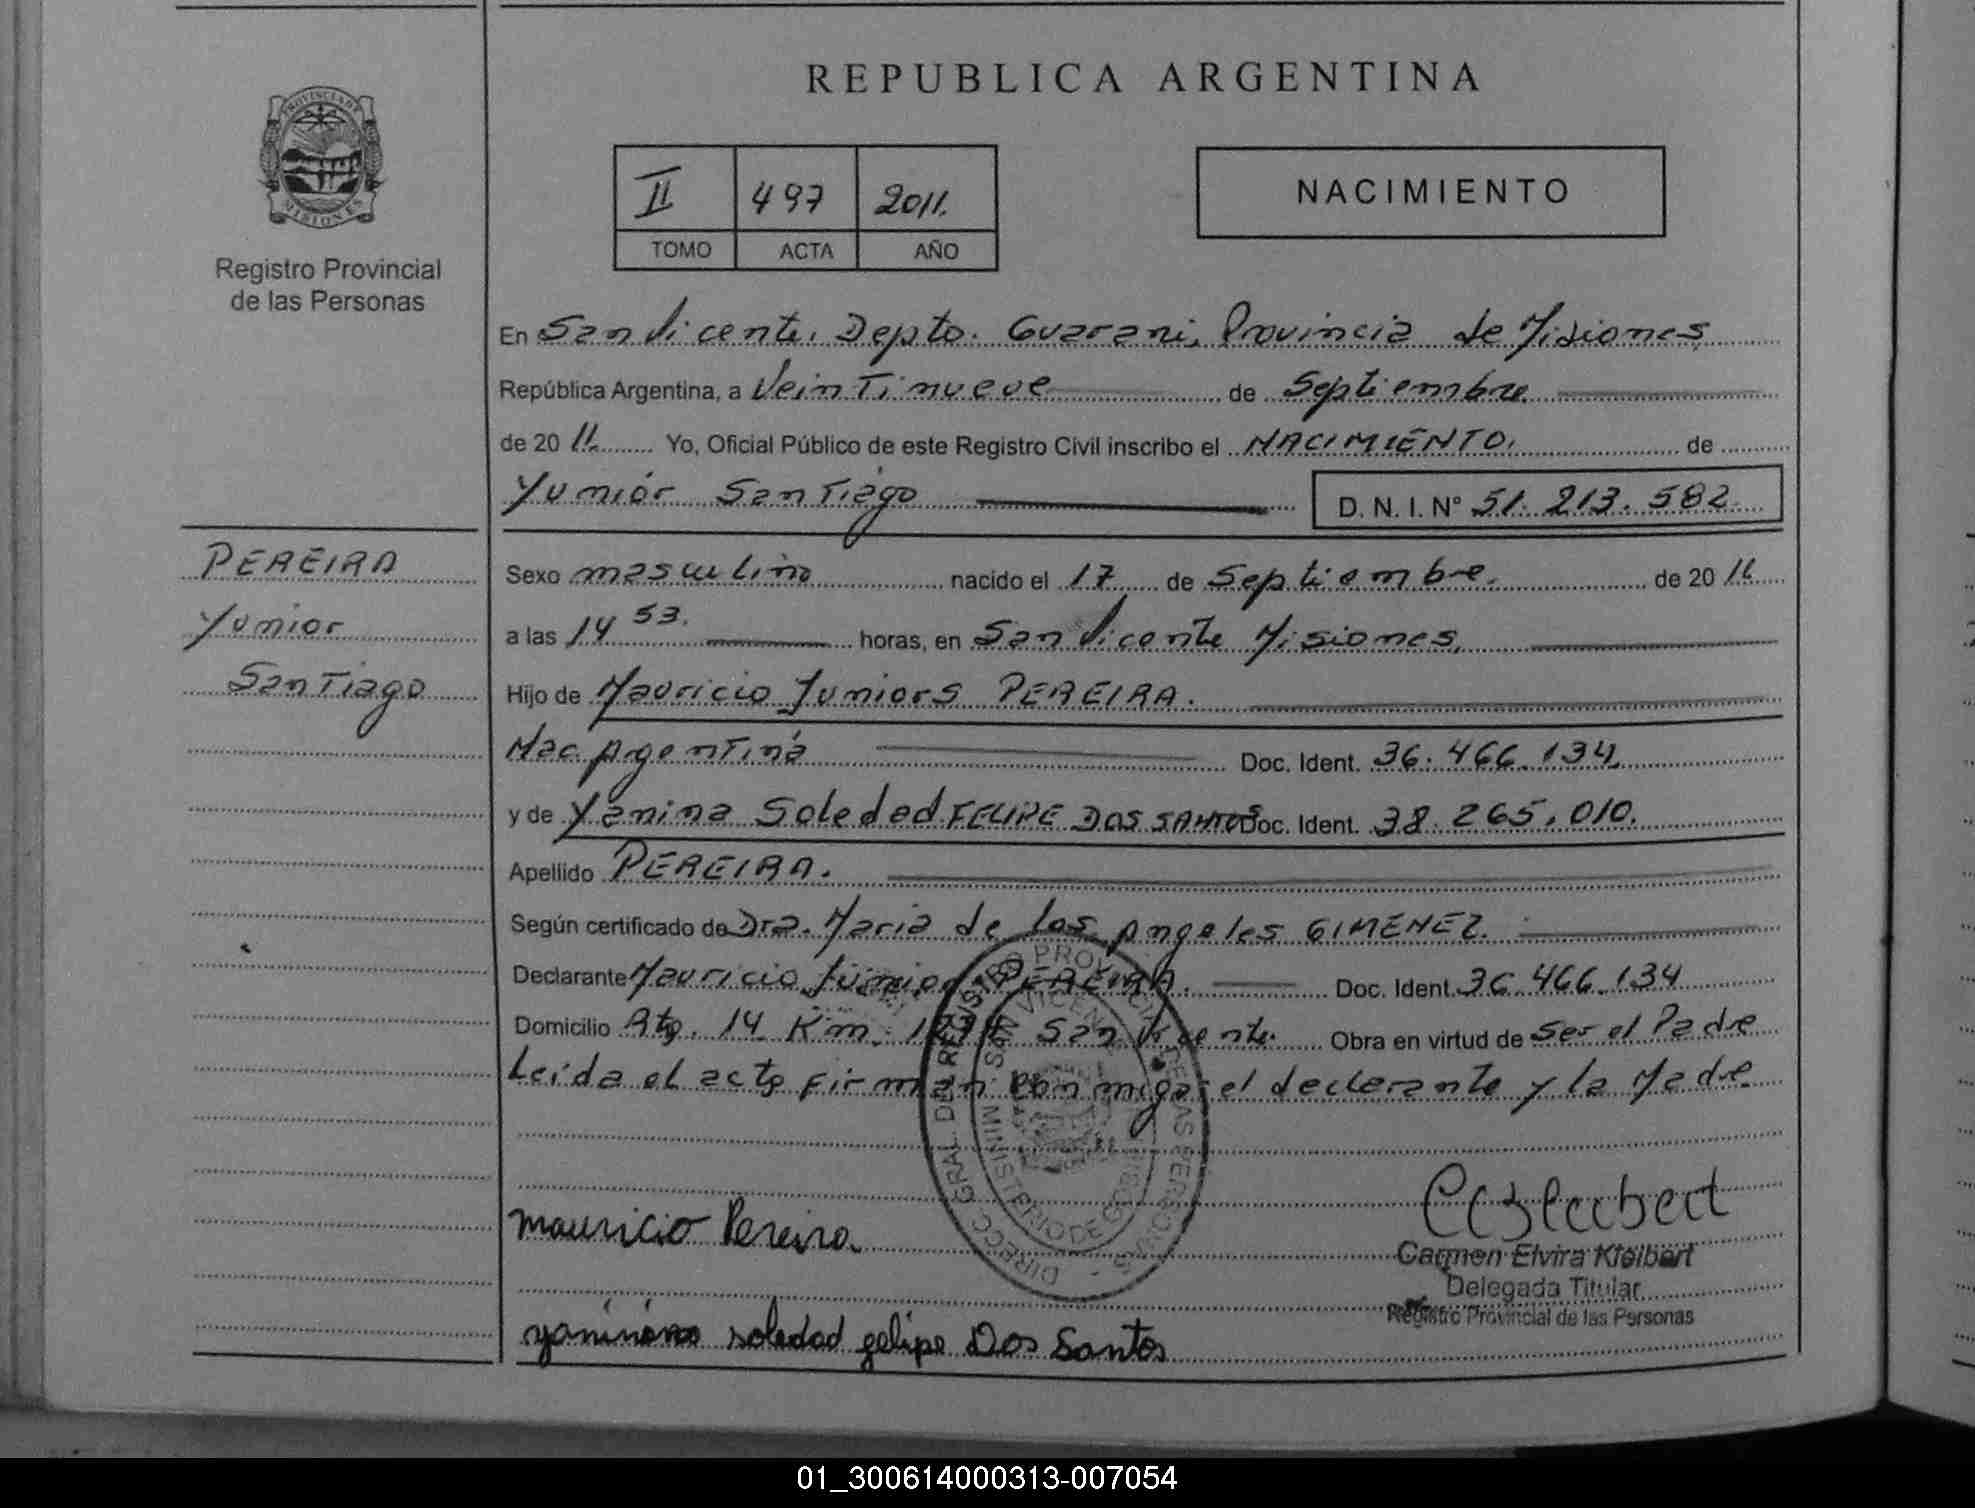 REPUBLICA ARGENTINA
PROVINCIA DE
MISIONES
Registro Provincial
de las Personas
II 497 2011.
TOMO ACTA AÑO
NACIMIENTO
En San Vicente, Depto. Guarani, Provincia de Misiones
República Argentina, a Veintinueve de Septiembre
de 20 11. Yo, Oficial Público de este Registro Civil inscribo el NACIMIENTO, de
Yuniór Santiago D. N. I. N° 51.213.582.
PEREIRA
Yunior
Santiago
Sexo masculino nacido el 17 de Septiembre. de 20 11
a las 14 53. horas, en San Vicente Misiones,
Hijo de Mauricio Juniors PEREIRA.
Nac. Argentina Doc. Ident. 36.466.134
y de Yanina Soledad FELIPE DOS SANTOS Doc. Ident. 38.265.010.
Apellido PEREIRA.
Según certificado de Dra. Maria de los Angeles GIMENEZ.
Declarante Mauricio Juniors PEREIRA. Doc. Ident. 36.466.134
Domicilio Rta. 14 Km. San Vicente. Obra en virtud de Ser el Padre
Leida el acta firman conmigo el declarante y la Madre
DIRECC. GRAL. DE REGISTRO PROVINCIAL DE LAS PERSONAS
SAN VICENTE
MINISTERIO DE GOBIERNO
mauricio Pereira
Carmen Elvira Kleibert
Delegada Titular
Registro Provincial de las Personas
soledad felipe Dos Santos
01_300614000313-007054